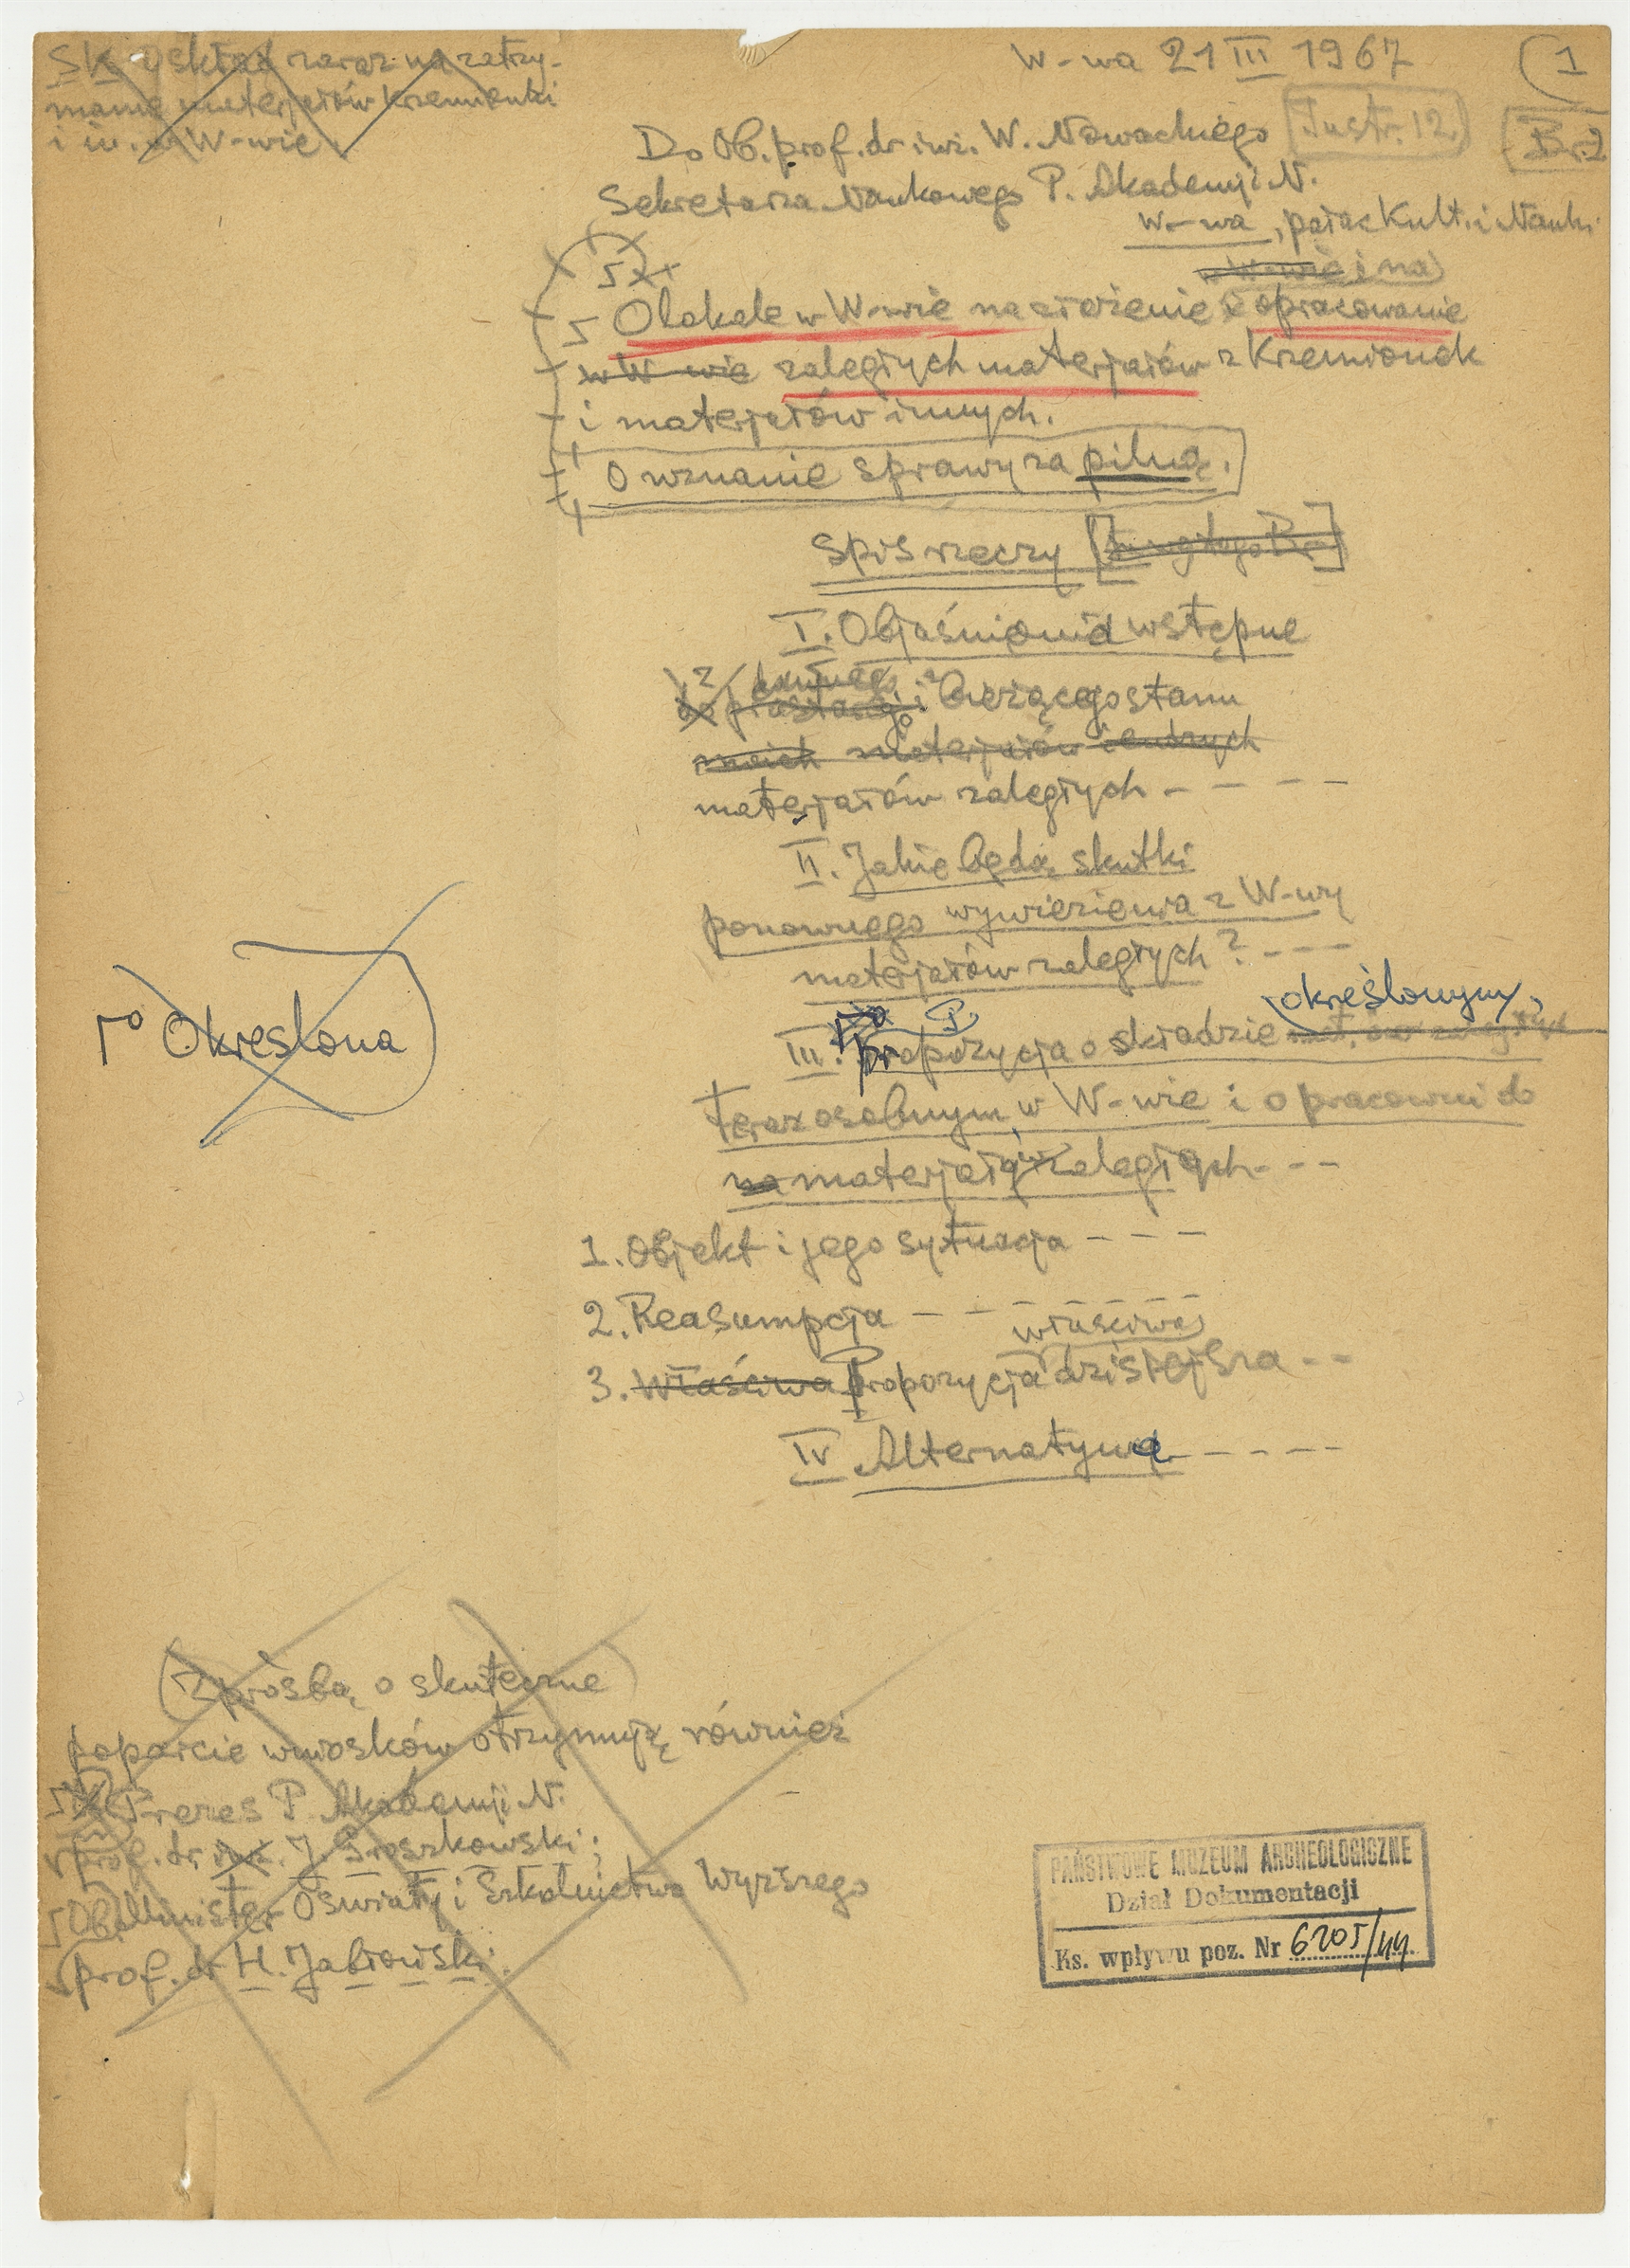 SK i skład zaraz na zatrzy-
manie materjałów krzemionki
i in. w W-wie
W-wa 21 III 1967
1
Do Ob. prof. dr. inż. W. Nowackiego
Iustr. 12.
Br. 2
Sekretarza Naukowego P. Akademji N.
W-wa, pałac Kult. i Nauki
w W-wie i na
O lokale w W-wie na złożenie i opracowanie
w W-wie zaległych materjałów z Krzemionek
i materjałów innych.
O uznanie sprawy za pilną.
Spis rzeczy
I. Objaśnienia wstępne
z dawnego
do i bieżącego stanu
moich materjałów i endnych
materjałów zaległych - - - -
II. Jakie będą skutki
ponownego wywiezienia z W-wy
materjałów zaległych? - - -
określonym,
Określona
III. Propozycja o składzie
teraz osobnym w W-wie i o pracowni do
na materjałów zaległych - - -
1. Objekt i jego sytuacja - - -
2. Reasumpcja - - - - - - -
właściwa
3. Właściwa Propozycja dzisiejsza - -
IV Alternatywa - - - - -
(z prośbą o skuteczne)
poparcie wniosków otrzymują również
Prezes P. Akademji N.
prof. dr. inż. J. Groszkowski;
Ob. Minister Oświaty i Szkolnictwa Wyższego
prof. dr H. Jabłowski.
PAŃSTWOWE MUZEUM ARCHEOLOGICZNE
Dział Dokumentacji
Ks. wpływu poz. Nr 6205/44